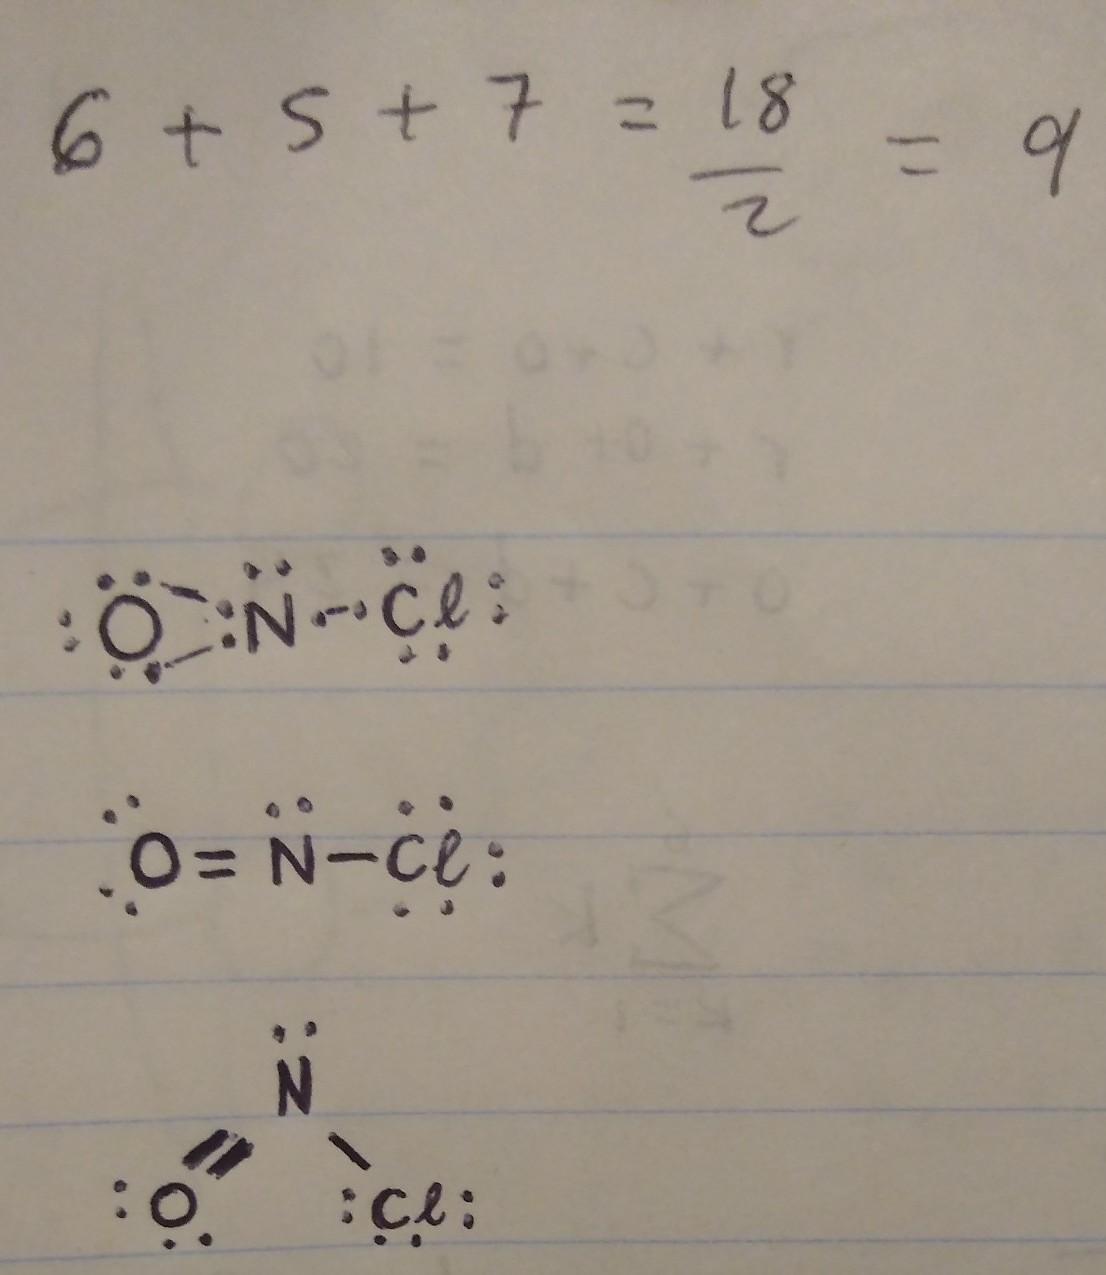 6 + 5 + 7 = 18/2 = 9
:Ö:N̈·-·C̈l:
Ö=N̈-C̈l:
N̈
:O :Cl: